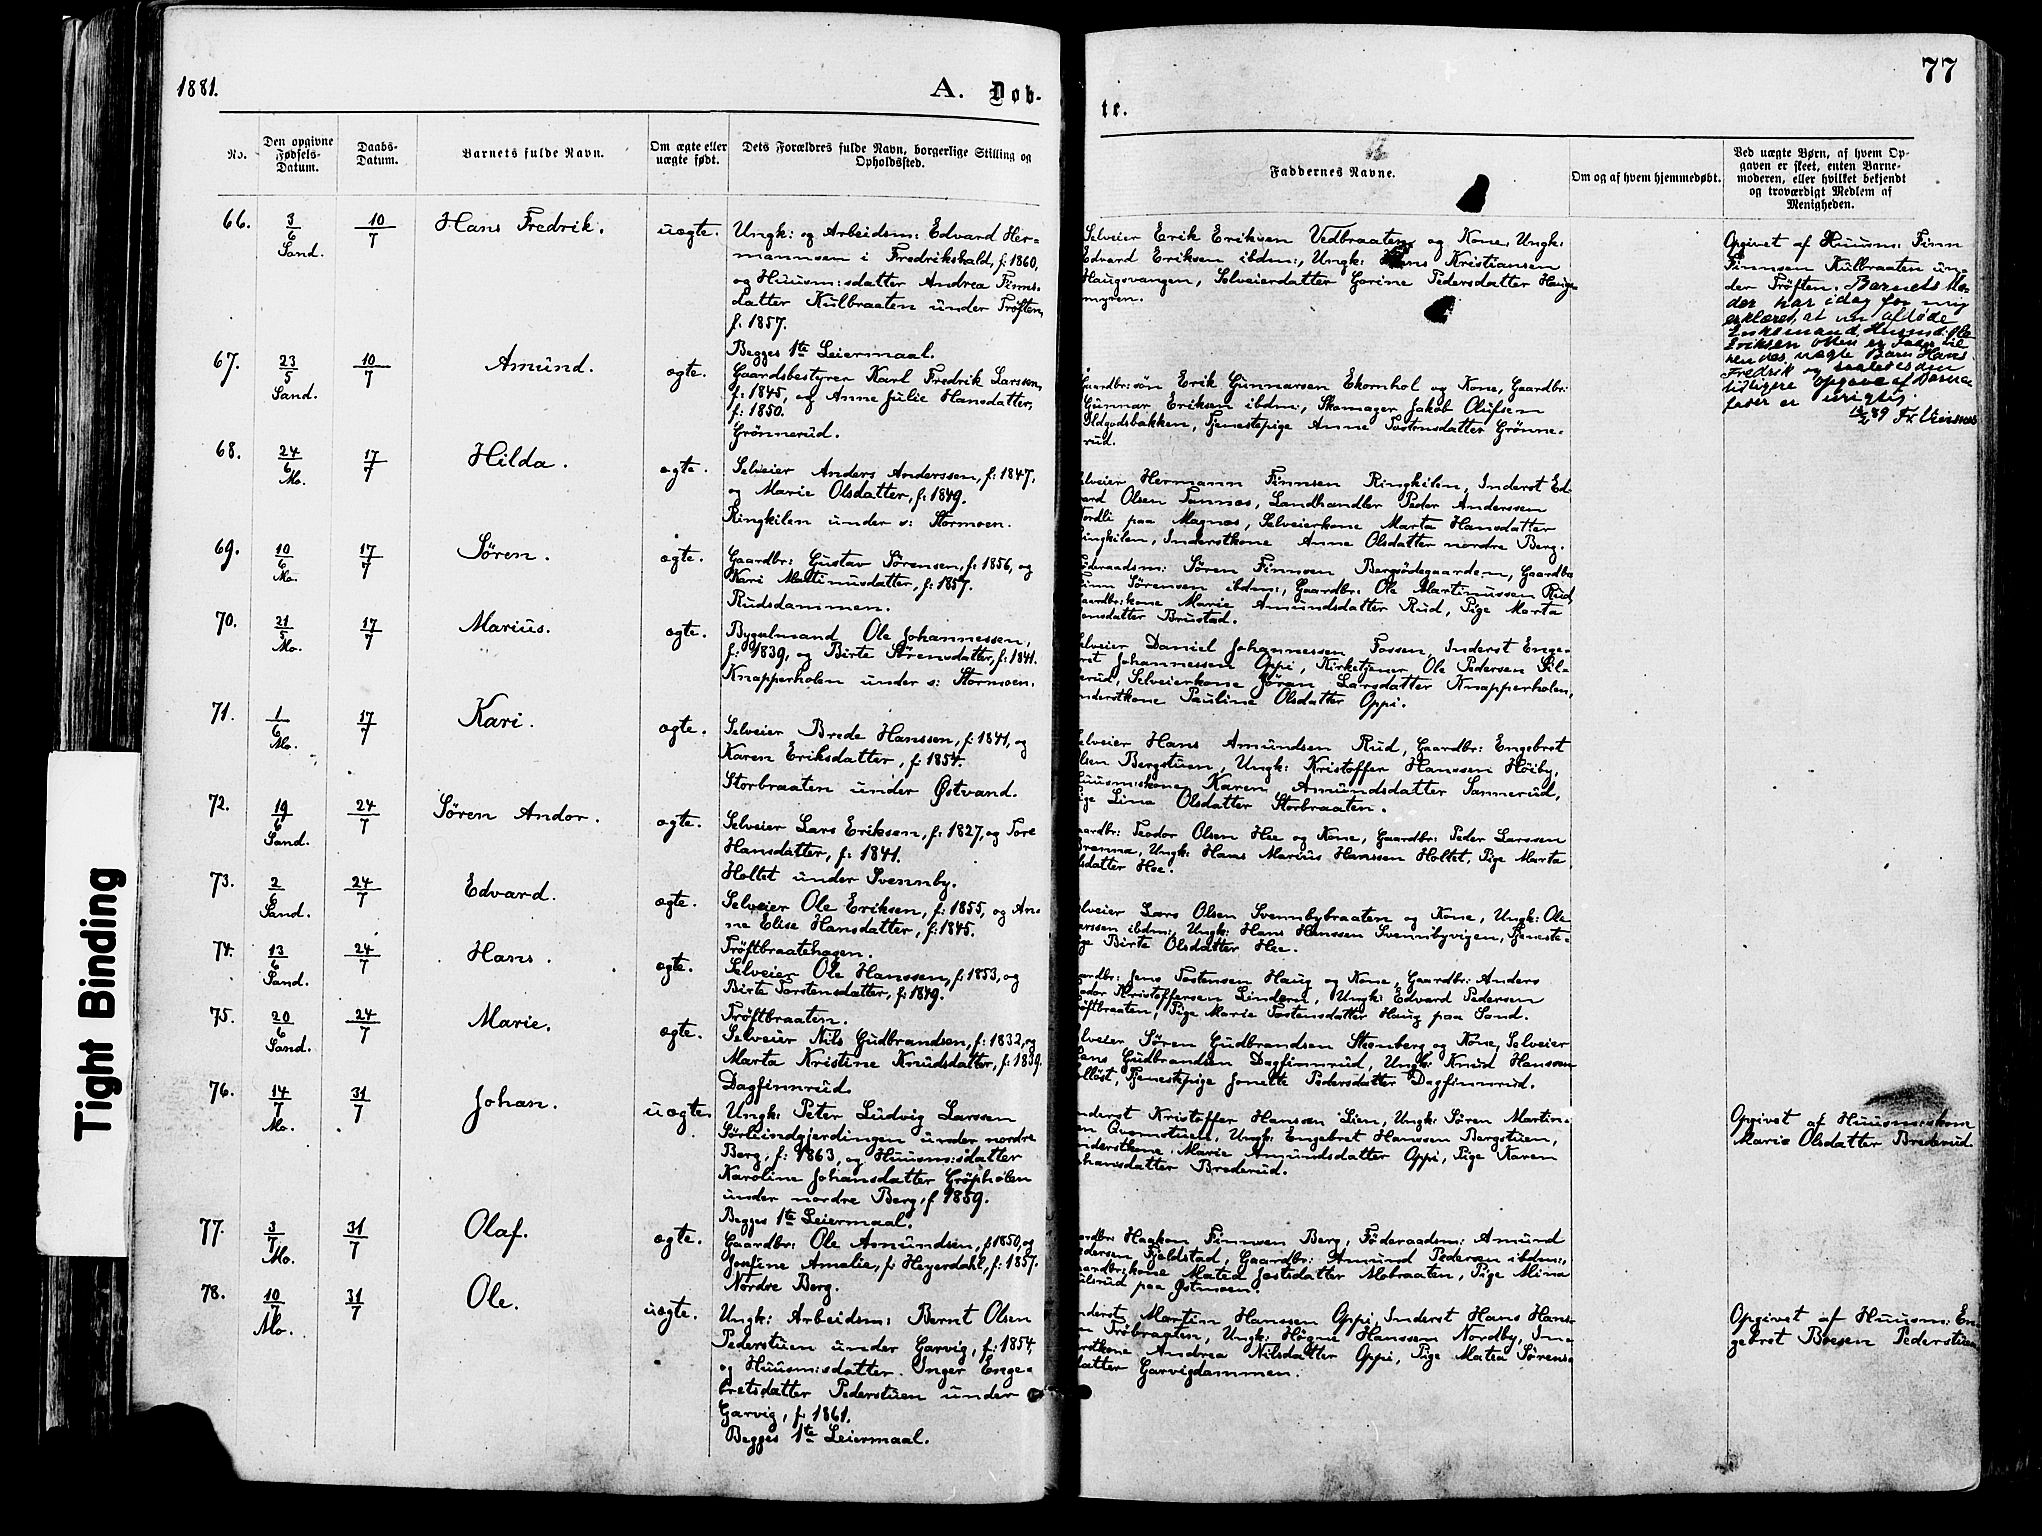 1881.
A. Døb-
te.
77
No.
Den opgivne Fødsels-Datum.
Daabs-Datum.
Barnets fulde Navn.
Om ægte eller uægte født.
Dets Forældres fulde Navn, borgerlige Stilling og Opholdssted.
Faddernes Navne.
Om og af hvem hjemmedøbt.
Ved uægte Børn, af hvem Op-
gaven er skeet, enten Barne-
moderen, eller hvilket bekjendt
og troværdigt Medlem af
Menigheden.
66. 3/6 Sand. 10/7 Hans Fredrik. uægte.
Ungk: og Arbeidsm: Edvard Her-
mannsen i Fredrikshald, f: 1860,
og Huusm:sdatter Andrea Finns-
datter Kulbraaten under Trøften,
f. 1857.
Begges 1te Leiermaal.
Selveier Erik Eriksen Vedbraaten og Kone, Ungk:
Edvard Eriksen ibdm:, Ungk: Hans Kristiansen
Haugsvangen, Selveierdatter Gorine Pedersdatter Hauge-
myren.
Opgivet af Huusm: Finn
Finnsen Kulbraaten un-
der Trøften. Barnets Mo-
der har idag for mig
erklæret, at nu afdøde
Enkemand, Husmd: Ole
Eriksen er Fader til
hendes uægte Barn Hans
Fredrik og saaledes den
tidligere Opgave af Barne-
fader er urigtig.
67. 23/5 Sand. 10/7 Amund. ægte.
Gaardsbestyrer Karl Fredrik Larssen,
f: 1845, og Anne Julie Hansdatter,
f: 1850.
Grønnerud.
Gaardbr:søn Erik Gunnarsen Ekornhol og Kone, Gaardbr:
Gunnar Eriksen ibdm:, Skomager Jakob Olufsen
Oldgodsbakken, Tjenestepige Anne Tostensdatter Grønne-
rud.
68. 24/6 Mo. 17/7 Hilda. ægte.
Selveier Anders Anderssen, f: 1847,
og Marie Olsdatter, f: 1849.
Ringkilen under s: Stormoen.
elveier Hermann Finnsen Ringkilen, Inderst Ed-
vard Olsen Tannæs, Landhandler Peder Anderssen
Nordli paa Magnæs, Selveierkone Marta Hansdatter
ingkilen, Inderstkone Anne Olsdatter nordre Berg.
69. 10/6 Mo. 17/7 Søren. ægte.
Gaardbr: Gustav Sørensen, f: 1856, og
Kari Martinusdatter, f: 1857.
Rudsdammen.
øderaadsm: Søren Finnsen Bergsødegaarden, Gaardbr:
Finn Sørensen ibdm:, Gaardbr: Ole Martinussen Rud,
aardbr:kone Marie Amundsdatter Rud, Pige Marta
onsdatter Brustad.
70. 21/5 Mo. 17/7 Marius. ægte.
Bygselmand Ole Johannessen,
f: 1839, og Birte Sørensdatter, f: 1841.
Knapperholen under s: Stormoen.
elveier Daniel Johannessen Fossen, Inderst Enge-
bret Johannessen Oppi, Kirketjener Ole Pedersen Sol-
erud, Selveierkone Jøran Larsdatter Knapperholen,
nderstkone Pauline Olsdatter Oppi.
71. 1/6 Mo. 17/7 Kari. ægte.
Selveier Brede Hanssen, f: 1841, og
Karen Eriksdatter, f: 1854.
Storbraaten under Østvand.
elveier Hans Amundsen Rud, Gaardbr: Engebret
lsen Bergstuen, Ungk: Kristoffer Hanssen Høiby,
uusm:kone Karen Amundsdatter Sannerud,
ige Lina Olsdatter Storbraaten.
72. 19/6 Sand. 24/7 Søren Andor. ægte.
Selveier Lars Eriksen, f: 1827, og Tore
Hansdatter, f: 1841.
Holtet under Svennby.
aardbr: Teodor Olsen Hee og Kone, Gaardbr: Peder Larssen
Branna, Ungk: Hans Marius Hanssen Holtet, Pige Marta
lsdatter Hee.
73. 2/6 Sand. 24/7 Edvard. ægte.
Selveier Ole Eriksen, f: 1855, og An-
ne Elise Hansdatter, f: 1845.
Trøftbraatehagen.
elveier Lars Olsen Svennbybraaten og Kone, Ungk: Ole
arssen ibdm:, Ungk: Hans Hanssen Svennbyvigen, Tjeneste-
ige Birte Olsdatter Hee.
74. 13/6 Sand. 24/7 Hans. ægte.
Selveier Ole Hanssen, f: 1853, og
Birte Torstensdatter, f: 1849.
Trøftbraaten.
ardbr: Jens Tostensen Haug og Kone, Gaardbr: Anders
eodor Kristoffersen Lindern, Ungk: Edvard Pedersen
røftbraaten, Pige Marie Tostensdatter Haug paa Sand.
75. 20/6 Sand. 24/7 Marie. ægte.
Selveier Nils Gudbrandsen, f: 1832, og
Marta Kristine Knudsdatter, f: 1839.
Dagfinnrud.
elveier Søren Gudbrandsen Stenberg og Kone, Selveier
Hans Gudbrandsen Dagfinnrud, Ungk: Knud Hanssen
olløst, Tjenestepige Jonette Pedersdatter Dagfinnrud.
76. 14/7 Mo. 31/7 Johan. uægte.
Ungk: Peter Ludvig Larssen
Sørlindgjerdingen under nordre
Berg, f: 1863, og Huusm:sdatter
Karoline Johansdatter Grøpholen
under nordre Berg, f 1859.
Begges 1te Leiermaal.
nderst Kristoffer Hanssen Lien, Ungk: Søren Martin-
en Qvernstuen, Ungk: Engebret Hanssen Bergstuen,
nderstkone Marie Amundsdatter Oppi, Pige Karen
ohansdatter Brederud.
Opgivet af Huusm:skone
Marie Olsdatter Brederud
77. 3/7 Mo. 31/7 Olaf. ægte.
Gaardbr: Ole Amundsen, f 1850, og
Josefine Amalie, f. Heyerdahl, f: 1857.
Nordre Berg.
ardbr: Haakon Finnsen Berg, Føderaadsm: Amund
edersen Fjeldstad, Gaardbr: Amund Pedersen ibdm:,
aardbr:kone Matea Jostsdatter Mobraaten, Pige Mina
ulsrud paa Østmoen.
78. 10/7 Mo. 31/7 Ole. uægte.
Ungk: Arbeidsm: Bernt Olsen
Pederstuen under Garvig, f: 1854,
og Huusm:sdatter Inger Enge-
bretsdatter Pederstuen under
Garvig, f 1861.
Begges 1te Leiermaal.
nderst Martin Hanssen Oppi, Inderst Hans Hans-
en Trøbraaten, Ungk: Høgne Hanssen Nordby, In-
erstkone Andrea Nilsdatter Oppi, Pige Matea Sørens-
datter Garvigdammen.
Opgivet af Huusm: En-
gebret Boesen Pederstuen
Tight Binding